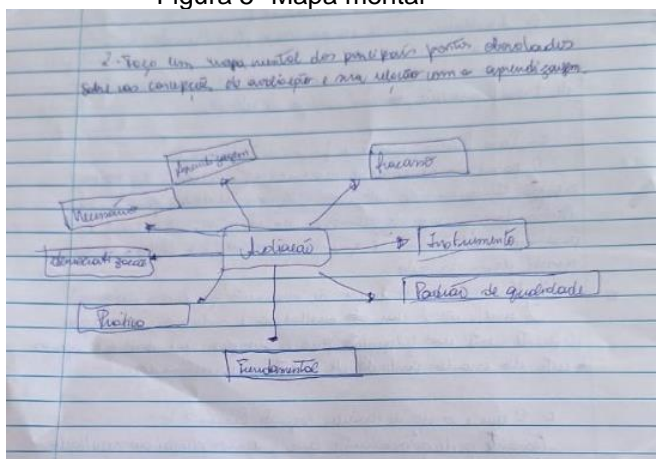 Figura 3- Mapa mental
2. Faça um mapa mental dos principais pontos abordados
sobre as concepção de avaliação e sua relação com a aprendizagem.
Aprendizagem
fracasso
Necessário
Avaliação
Instrumento
democratização
Padrão de qualidade
Prática
Fundamental